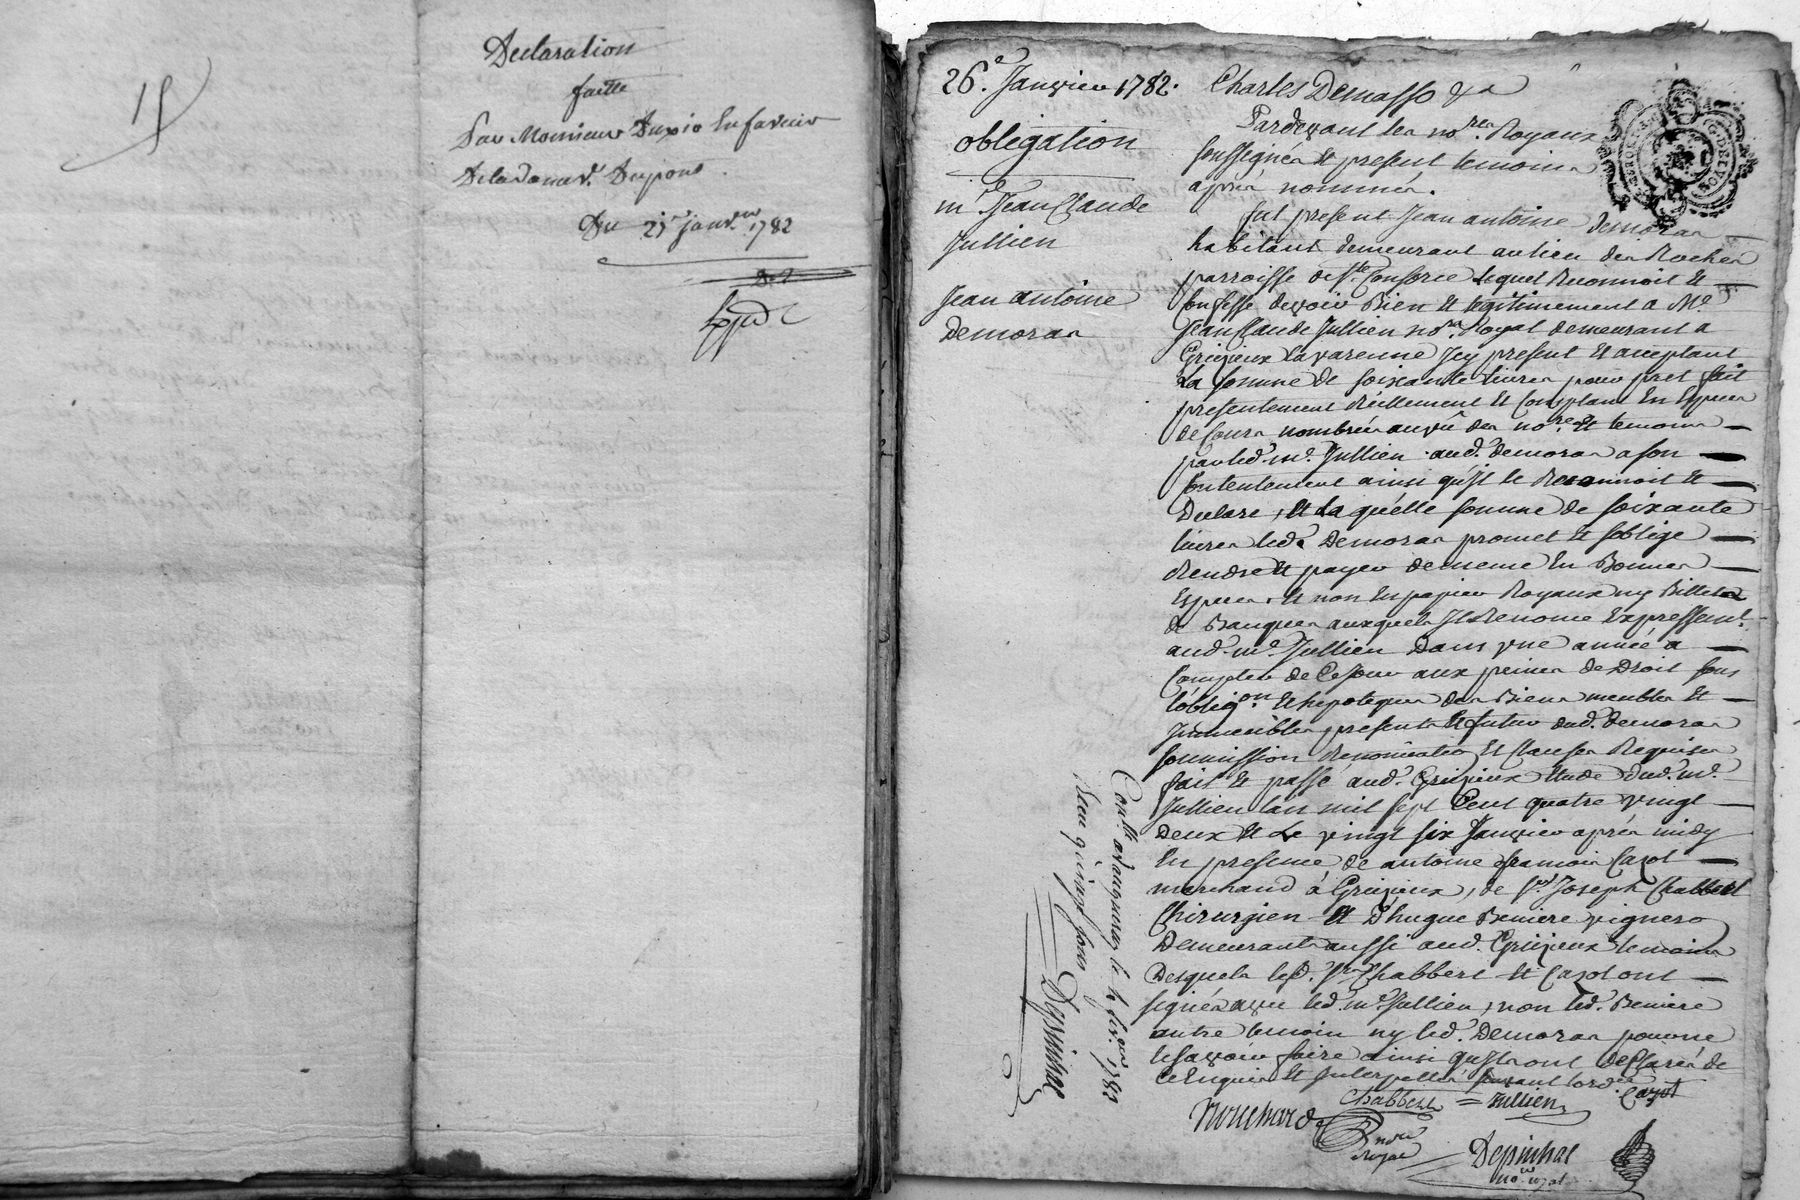 15
Declaration
faitte
Par Monsieur Dupin En faveur
De la dame v.e Dupions
Du 25.e janv.er 1782
26.e Janvier 1782.
obligation
m.e Jean Claude
Jullien
Jean antoine
Demoras
Charles Demasso &a
Pardevant les no.res Royaux
soussignés Et present temoins
après nommés.
fut present Jean antoine Demoras
habitant demeurant au lieu des Roches
parroisse de S.te Consorce lequel Reconnoit Et
Confesse devoir Bien Et legitimement a M.e
Jean Claude Jullien no.re Royal demeurant a
Grezieux Lavarenne Icy present Et acceptant
La somme de soixante livres pour pret fait
presentement réellement Et Comptant En Especes
de cours nombrées au vû des no.res Et temoins
par led. m.e Jullien aud. demoras a son
Contentement ainsi qu'il le Reconnoit Et
Declare, Et La quelle somme de soixante
livres led. Demoras promet Et s'oblige
Rendre Et payer de meme En Bonnes
Especes, Et non En papiers Royaux ny Billets
de Banques auxquels Il Renonce Expressem.t
aud. m.e Jullien Dans une année a
Compter de Ce jour aux peines de Droit sous
l'oblig.on Et hipoteques des Biens meubles Et
Immeubles presents Et futurs dud. Demoras
soumission Renonciation Et Clauses Requises
fait Et passé aud. Grezieux Etude dud. m.e
Jullien l'an mil sept Cent quatre vingt
Deux Et Le vingt six Janvier après midy
En presence de antoine francois Cazot
marchand à Grezieux, de s.r Joseph Chabbert
Chirurgien Et D'hugue Beniere vigneron
Demeurants aussi aud. Grezieux temoins
Desquels lesd. s.rs Chabbert Et Cazot ont
signés avec led. m.e Jullien, non led. Beniere
autre temoin ny led. Demoras pour ne
le savoir faire ainsi qu'ils ont declarés de
Ce Enquis Et Interpellés suivant l'ord.ce
Chabbert = Jullien Cazot
Nouchard
no.re
Royal
Depinhac
no. royal
Con.lle a Vaugneray le 4 fev.er 1782
Reçu quinze sous
Depinhac